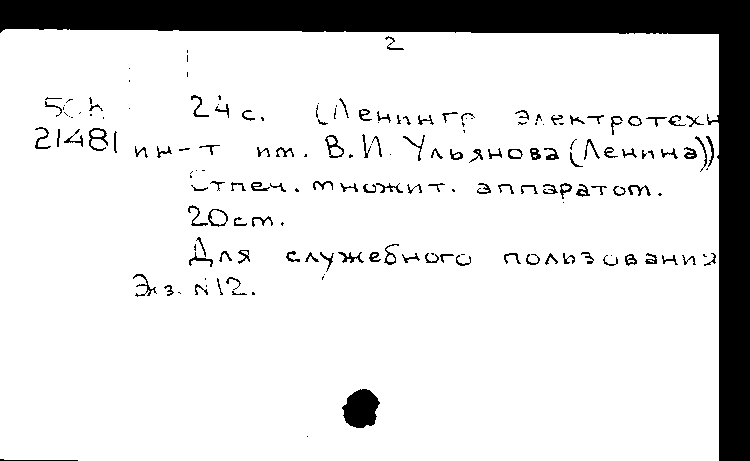 2
24 с. (Ленингр электротехн
21481 ин-т им. В.И. Ульянова (Ленина)).
Отпеч. множит. аппаратом.
20 см.
Для служебного пользования
Экз. №12.